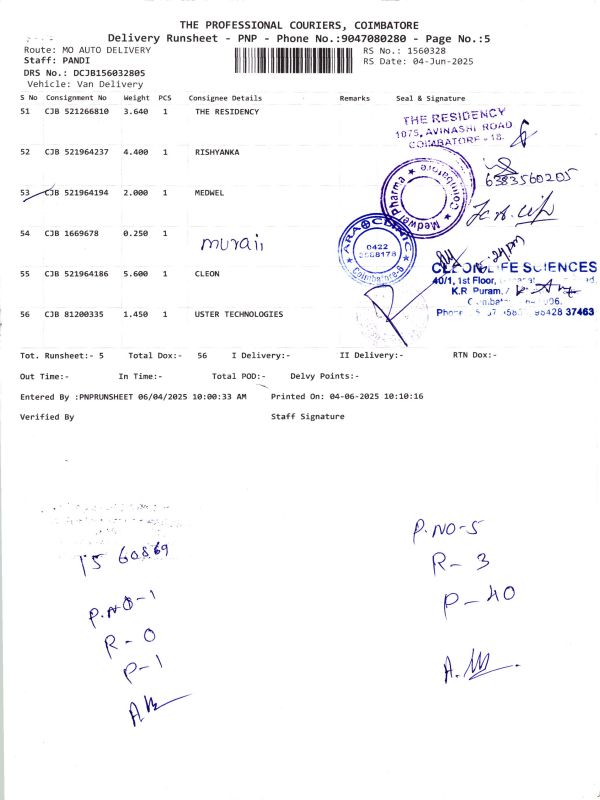 THE PROFESSIONAL COURIERS, COIMBATORE
Delivery Runsheet - PNP - Phone No.:9047080280 - Page No.:5
Route: MO AUTO DELIVERY
RS No.: 1560328
Staff: PANDI
RS Date: 04-Jun-2025
DRS No.: DCJB156032805
Vehicle: Van Delivery
S No Consignment No Weight PCS Consignee Details Remarks Seal & Signature
51 CJB 521266810 3.640 1 THE RESIDENCY
THE RESIDENCY
1075, AVINASHI ROAD
COIMBATORE - 18.
52 CJB 521964237 4.400 1 RISHYANKA
6383560205
53 CJB 521964194 2.000 1 MEDWEL
Medwel Pharma
Coimbatore
54 CJB 1669678 0.250 1
murali
ARA CLINIC
0422
Coimbatore-6
55 CJB 521964186 5.600 1 CLEON
CLEON LIFE SCIENCES
40/1, 1st Floor,
K.R. Puram,
56 CJB 81200335 1.450 1 USTER TECHNOLOGIES
Tot. Runsheet:- 5 Total Dox:- 56 I Delivery:- II Delivery:- RTN Dox:-
Out Time:- In Time:- Total POD:- Delvy Points:-
Entered By :PNPRUNSHEET 06/04/2025 10:00:33 AM Printed On: 04-06-2025 10:10:16
Verified By Staff Signature
1560869
P.NO-1
R-0
P-1
P.NO-5
R-3
P-40